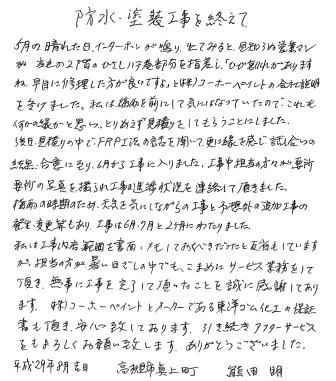 防水・塗装工事を終えて
5月の晴れた日、インターホンが鳴り、出てみると、見知らぬ営業マンが
当宅の2階のひさし(?)底部分を指差し、「ひび割れがありますね、
早目に修理した方が良いですよ」と(株)コーホーペイントの会社説明
を受けました。私は梅雨を前にして気にはなっていたので、これも
何かの縁かと思い、とりあえず見積りをしてもらうことにしました。
後日、見積りの中でFRP工法の話を聞いて更に縁を感じ、話し合いの
結果、合意に至り、6月から工事に入りました。工事中担当の方々が要所
要所の写真を撮られ工事進捗状況を連絡して頂きました。
梅雨の時期のため、天気を気にしながらの工事と予想外の追加工事の
発生、変更等もあり、工事は6月・7月と2ヶ月にわたりました。
私は工事内容範囲を書面、メモしておくべきだったと反省もしています
が、担当の方が暑い日ざしの中でも、こまめにサービス業務をして
頂き、無事に工事を完了して頂いたことを誠に感謝しており
ます。(株)コーホーペイントとメーカーである東洋ゴム化工の保証
書も頂き、安心致しております。引き続きアフターサービス
をもよろしくお願い致します。ありがとうございました。
平成29年8月吉日 高槻市真上町 熊田 明